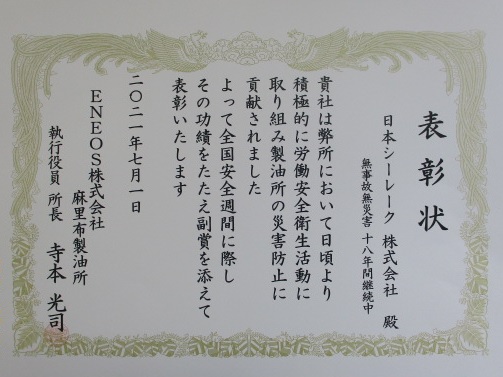 表彰状
日本シーレーク 株式会社 殿
無事故無災害 十八年間継続中
貴社は弊所において日頃より
積極的に労働安全衛生活動に
取り組み製油所の災害防止に
貢献されました
よって全国安全週間に際し
その功績をたたえ副賞を添えて
表彰いたします
二〇二一年七月一日
ENEOS株式会社
麻里布製油所
執行役員 所長 寺本 光司